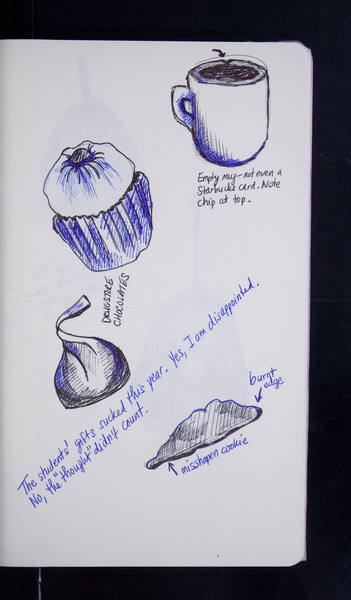 Empty mug - not even a
Starbucks card. Note
chip at top.
DRUGSTORE
CHOCOLATES
The students' gifts sucked this year. Yes, I am disappointed.
No, "the thought" didn't count.
burnt
edge
misshapen cookie